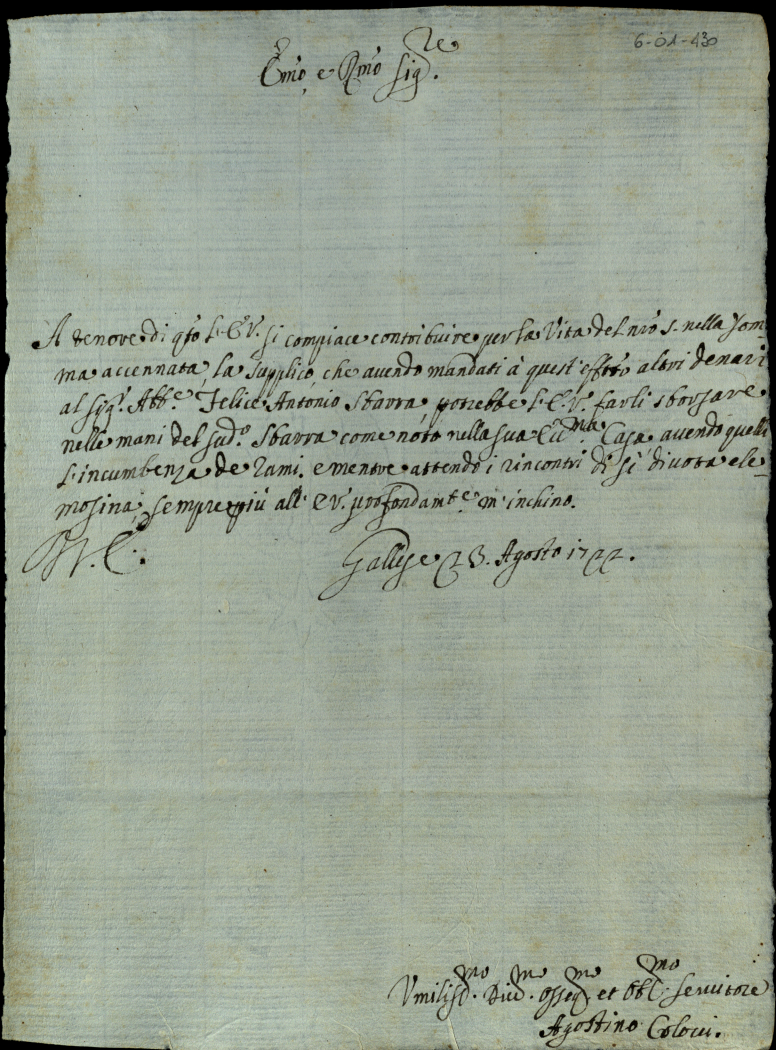 6-01-430
Emo, e Rmo Sigre.
A tenore di qto l'E.V. si compiace contribuire per la Vita del nro S. nella som=
ma accennata, la supplico, che avendo mandati à quest'effetto altri denari
al Sigr. Abbe. Felice Antonio Sbarra, potrebbe l'E.V. farli sborsare
nelle mani del sudo. Sbarra come noto nella sua Casa avendo quelli
l'incumbenza de Rami. e mentre attendo i rincontri di sì divota ele=
mosina, sempre più all'E.V. profondamte. m'inchino.
Gallese 23. Agosto 1722.
Umilismo. Divmo. Osseqmo. et Obblmo. Servitore
Agostino Colocci.